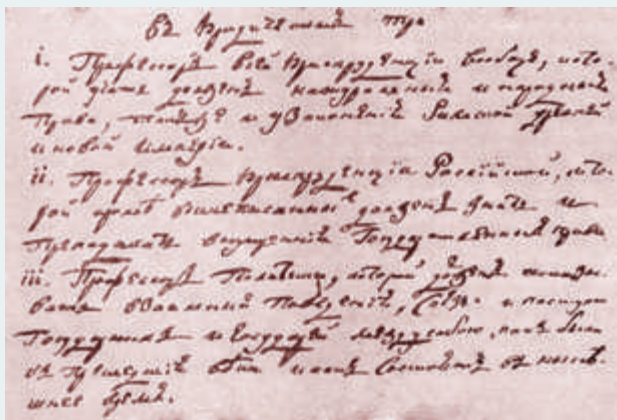 Въ Юридическомъ три
i. Профессоръ всей Юриспруденціи вообще, кото-
рой учить долженъ натуральныя и народныя
права, также и узаконенія Римской древней
и новой Имперіи.
ii. Профессоръ Юриспруденціи Россійской, кото-
рой кромѣ вышеписанныхъ долженъ знать и
преподавать внутреннія Государственныя права.
iii. Профессоръ Политики, которой долженъ показы-
вать взаимныя поведенія, союзы и поступки
Государствъ и Государей между собою, какъ были
въ прешедшіе вѣки и какъ состоятъ въ нынѣ-
шнее время.